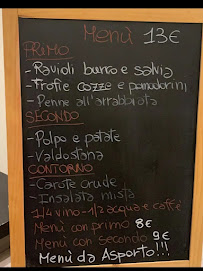 Menù 13€
PRIMO
- Ravioli burro e salvia
- Trofie cozze e pomodorini
- Penne all'arrabbiata
SECONDO
- Polpo e patate
- Valdostana
CONTORNO
- Carote crude
- Insalata mista
1/4 vino - 1/2 acqua e caffè
Menù con primo 8€
Menù con secondo 9€
Menù da Asporto!!!